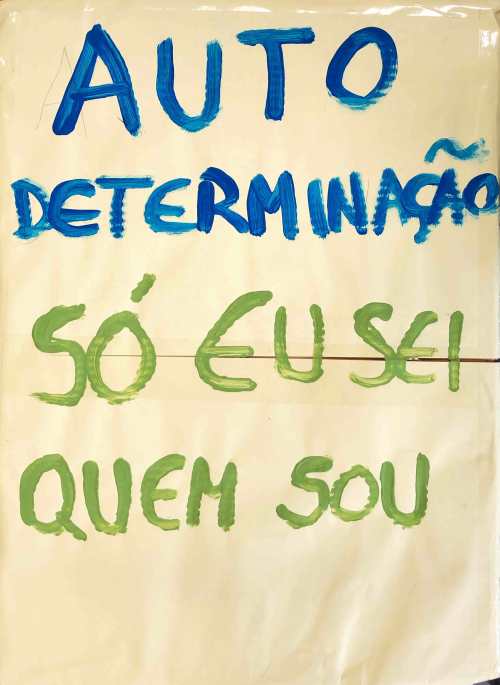 AUTO
DETERMINAÇÃO
SÓ EU SEI
QUEM SOU